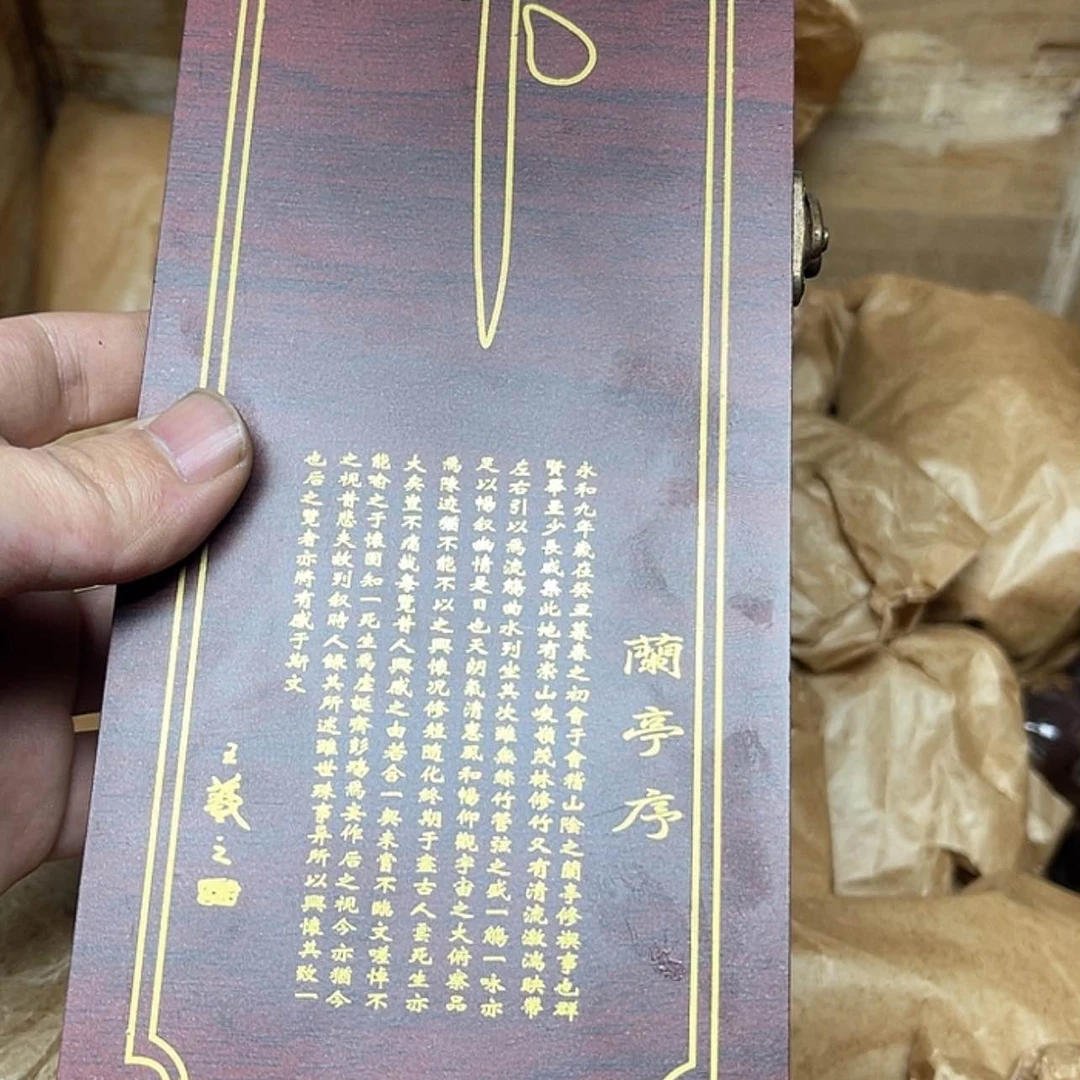 蘭亭序
永和九年歲在癸丑暮春之初會于會稽山陰之蘭亭修禊事也群
賢畢至少長咸集此地有崇山峻嶺茂林修竹又有清流激湍映帶
左右引以為流觴曲水列坐其次雖無絲竹管弦之盛一觴一咏亦
足以暢叙幽情是日也天朗氣清惠風和暢仰觀宇宙之大俯察品
為陳迹猶不能不以之興懷况修短隨化終期于盡古人雲死生亦
大矣豈不痛哉每覽昔人興感之由若合一契未嘗不臨文嗟悼不
能喻之于懷固知一死生為虛誕齊彭殤為妄作后之视今亦猶今
之视昔悲夫故列叙時人錄其所述雖世殊事异所以興懷其致一
也后之覽者亦將有感于斯文
王羲之